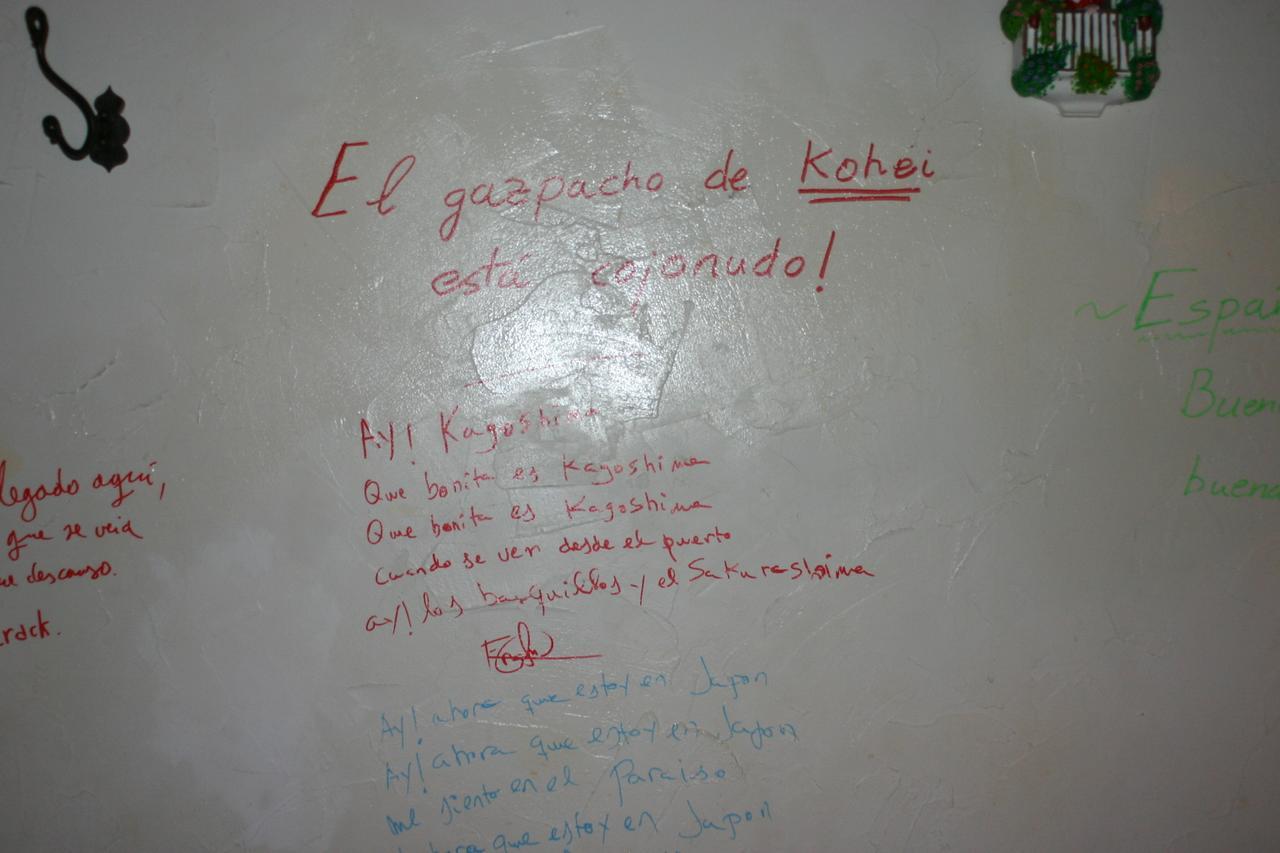 El gazpacho de Kohei
está cojonudo!
Ay! Kagoshima
Que bonita es Kagoshima
Que bonita es Kagoshima
Cuando se ven desde el puerto
ay! los barquillos y el Sakurashima
Ay! ahora que estoy en Japon
Ay! ahora que estoy en Japon
me siento en el Paraiso
que estoy en Japon
legado aquí,
que se veia
descanso.
rack.
~ Españ
Buen
buena